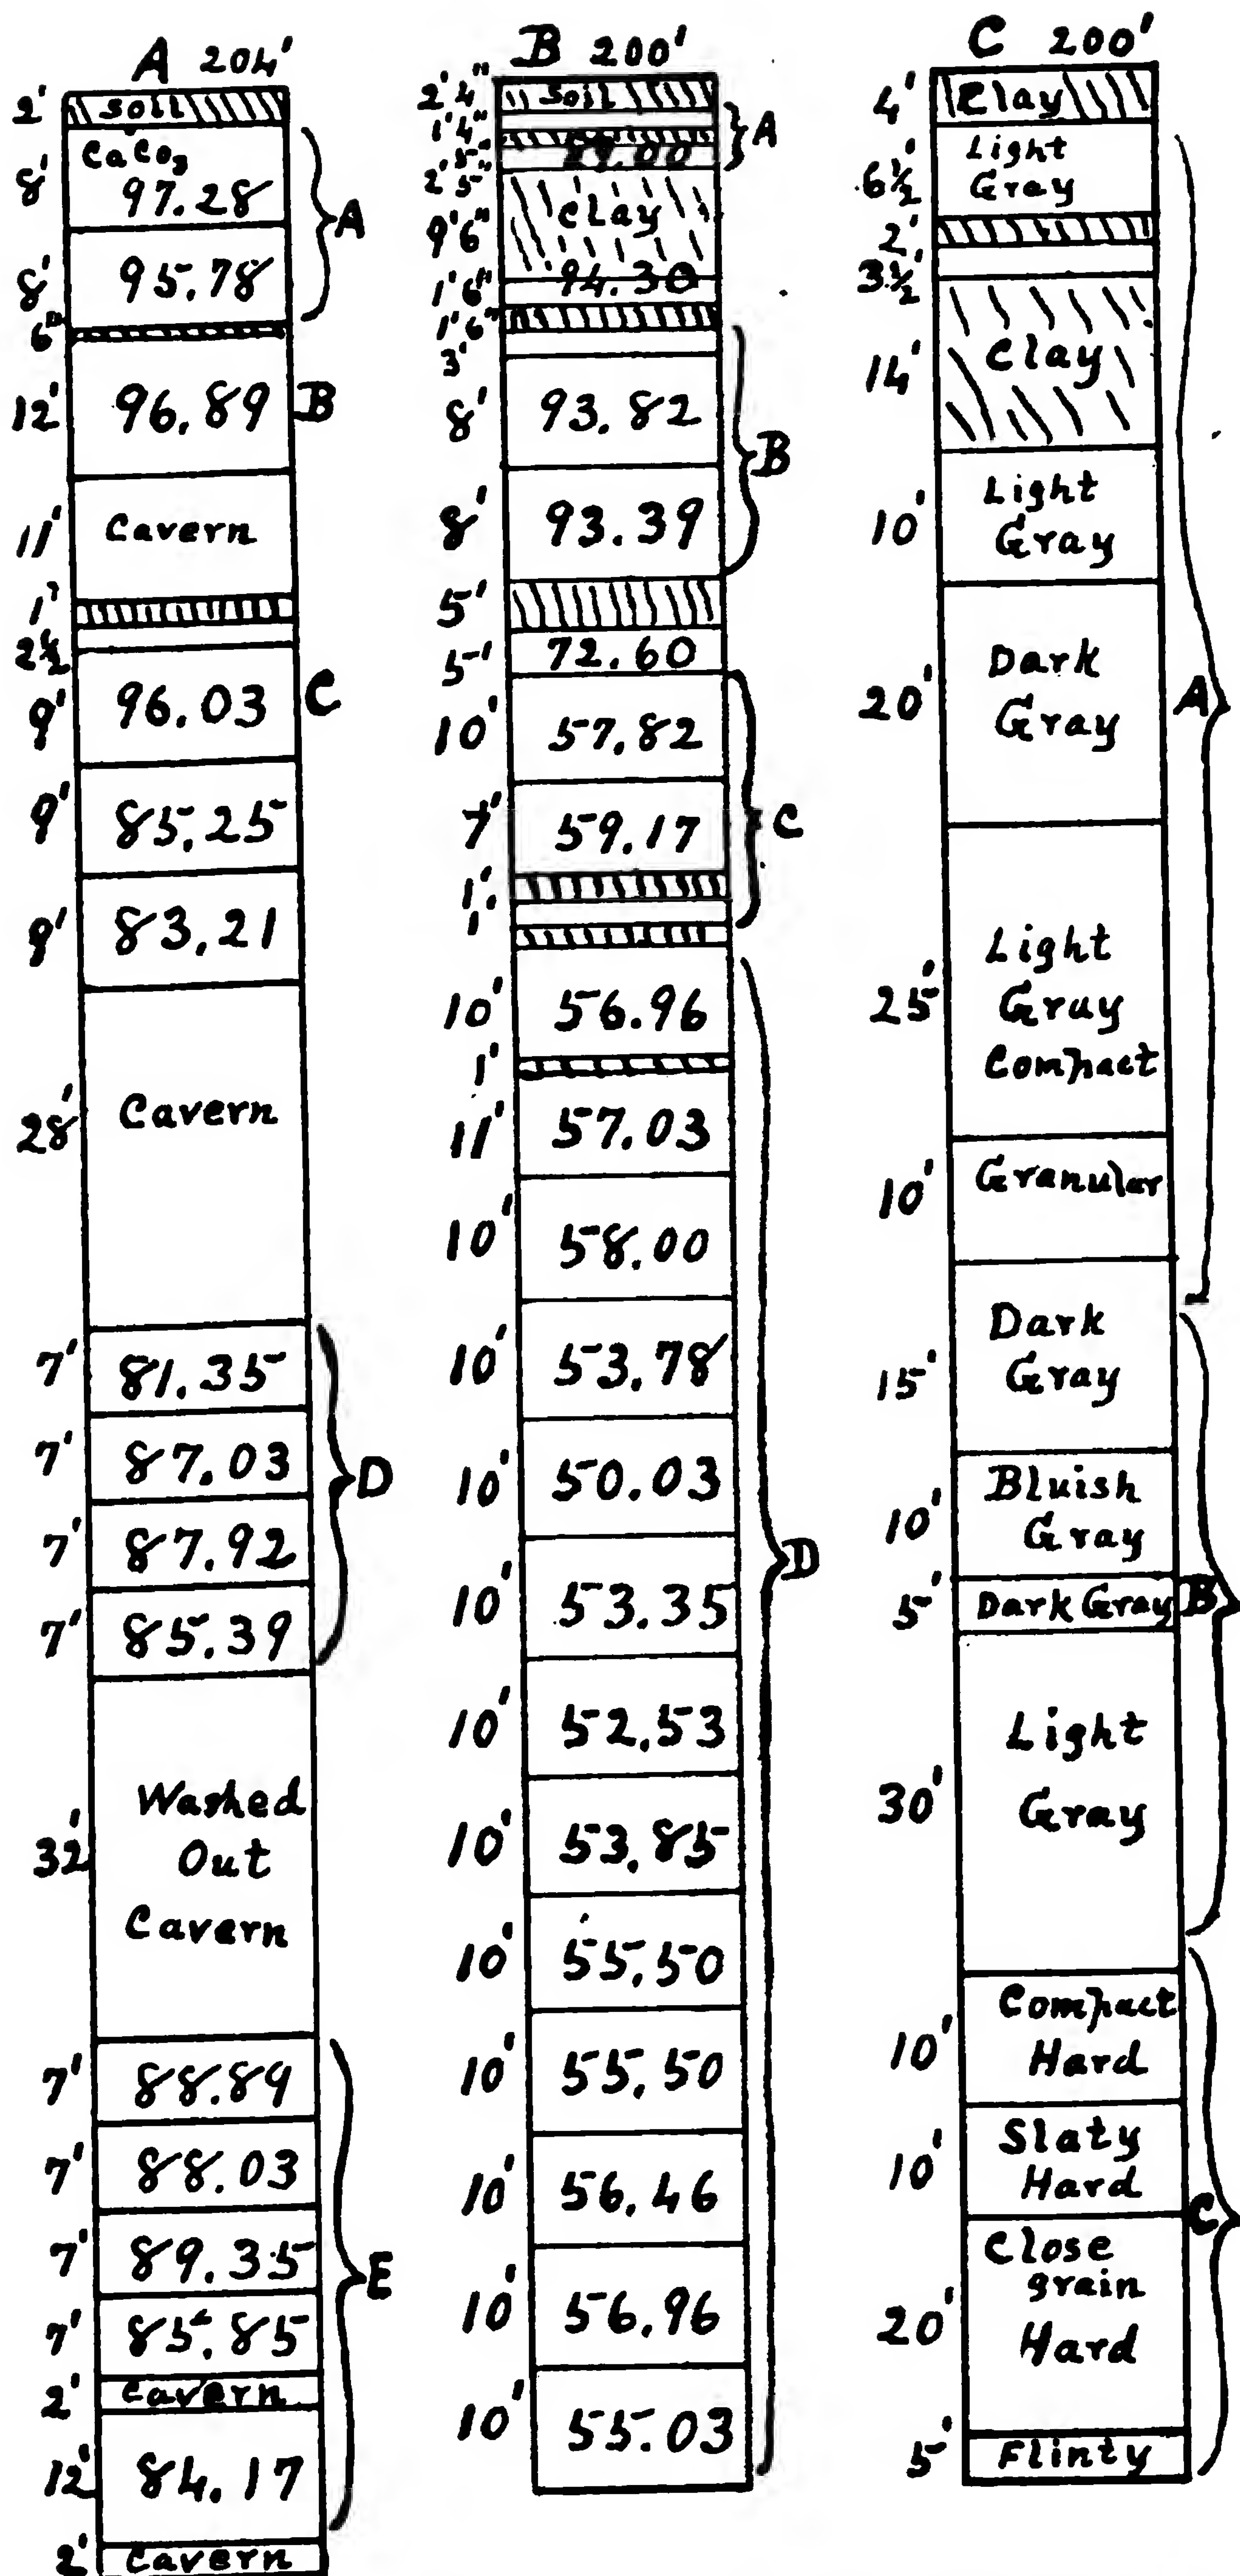 A 204'
2' Soil
8' CaCO3
97.28
A
8' 95.78
6"
12' 96.89 B
11' Cavern
1'
2½
9' 96.03 C
9' 85.25
9' 83.21
28' Cavern
7' 81.35
7' 87.03
D
7' 87.92
7' 85.39
Washed
32' Out
Cavern
7' 88.89
7' 88.03
7' 89.35
E
7' 85.85
2' Cavern
12' 84.17
2' Cavern
B 200'
2'4" Soil
1'4"
A
5"
2'5"
9'6" Clay
1'6" 94.30
1'6"
3'
8' 93.82
B
8' 93.39
5'
5' 72.60
10' 57.82
7' 59.17
C
1'
1'
10' 56.96
1'
11' 57.03
10' 58.00
10' 53.78
10' 50.03
D
10' 53.35
10' 52.53
10' 53.85
10' 55.50
10' 55.50
10' 56.46
10' 56.96
10' 55.03
C 200'
4' Clay
6½' Light
Gray
2'
3½'
14' Clay
10' Light
Gray
20' Dark
Gray
A
Light
25' Gray
Compact
10' Granular
Dark
15' Gray
10' Bluish
Gray
5' Dark Gray B
Light
30' Gray
Compact
10' Hard
Slaty
10' Hard
C
Close
grain
20' Hard
5' Flinty